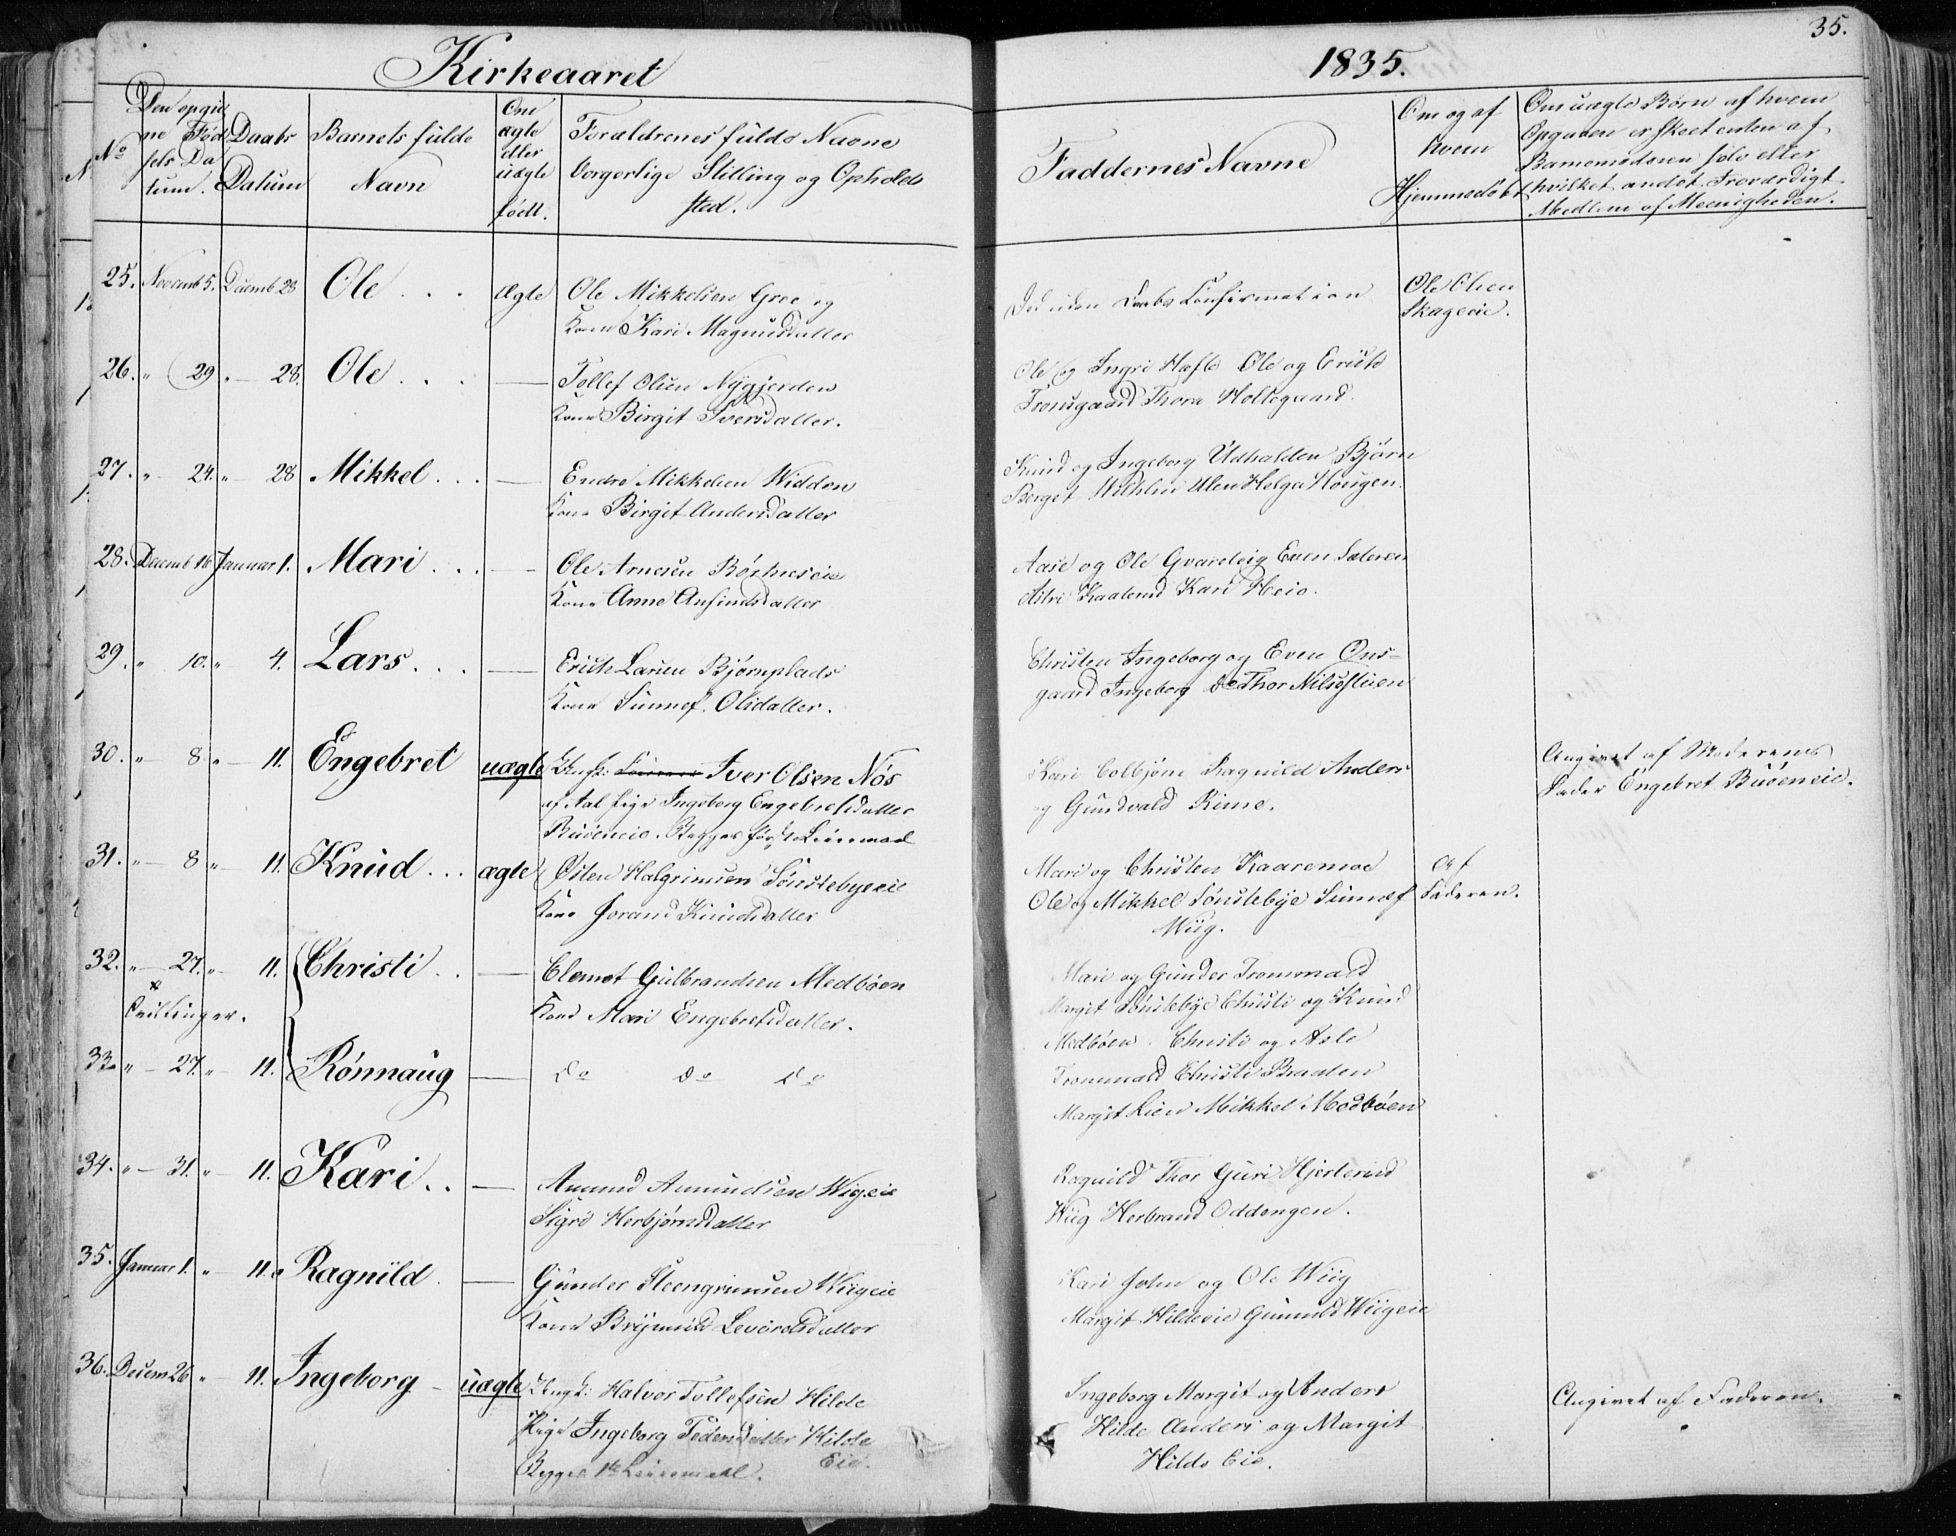 Kirkeaaret
1835.
35.
No
Den opgivne Fødsels Datum.
Daabs Datum
Barnets fulde Navn
Om ægte eller uægte født.
Forældrenes fulde Navne borgerlige Stilling og Opholdssted.
Faddernes Navne
Om og af hvem Hjemmedøbt
Om uægte Børn af hvem Opgaven er skeet enten af Barnemoderen selv eller hvilket andet troværdigt Medlem af Meenigheden.
25. Novemb 5. Decemb 28 Ole . . . ægte Ole Mikkelsen Gree og
Kone Kari Magnusdatter
Død uden Daabs Confirmation
Ole Olsen
Skageeie.
26. " 29 " — 28. Ole . . . — Tollef Olsen Nÿgjerden
Kone Birgit Iversdatter.
Ole og Ingri Hæfte Ole og Erich
Tronsgaard Thora Holtegaard.
27. " — 24. " — 28 Mikkel . . . — Endre Mikkelsen Widden
Kone Birgit Andersdatter
Knud og Ingeborg Udhalden Bjørn
Berget Ulen Helga Hougen.
28. Decemb 16 Januar 1. Mari . . . — Ole Arnesen
Kone Anne Ansindsdatter
Aase og Ole Even
Kari Heie.
29. " 10. " 4. Lars . . . — Erich Larsen Bjørnplads
Kone Sunnef. Olsdatter.
Christen Ingeborg og Even Ons-
gaard Ingeborg Do Thor Nilsestuen
30. " 8 " — 11. Engebret uægte Ungk: Iver Olsen Nøs
af Aal Pige Ingeborg Engebretsdatter
Buseneie. Begges første Leiermaal
Kari Colbjørn Ragnild Anders
og Gundvald Rime.
Angivet af Moderens
Fader Engebret Buseneie.
31. " — 8 " — 11. Knud . . . ægte Østen Halgrimsen Sønstebyeeie
Kone Jorand Knudsdatter
Mari og Christen Kaaremoe
Ole og Mikkel Sønstebye Sunnef
Wiig.
Af
Faderen.
32. " — 27. " — 11. Christi . . — Clemet Gulbrandsen Medbøen
Tvillinger.
Kone Mari Engebretsdatter.
Mari og Gunder Trommald
Margit Sønstebye Christi og Knud
Medbøen. Christi og Asle
33. " — 27. " — 11. Rønnaug — do do do
Trommald Christi Braaten
Margit Lien Mikkel Medbøen
34. " — 31. " — 11. Kari . . — Amund Amundsen Wigeie
Sigri Herbjørnsdatter
Ragnild Thor Guri Hjerterud
Wiig Herbrand Oddengen.
35. Januar 1. " — 11. Ragnild . — Gunder Steengrimsen Wiigeie
Kone Levordsdatter
Kari John og Ole Wiig
Margit Hildeeie Gunnild Wiigeie
36. Decem 26 " — 11. Ingeborg — uægte Ungk: Halvor Tollefsen Hilde
Pige Ingeborg Pedersdatter Hilde
Eie.
Begges 1te Leiermaal.
Ingeborg Margit og Anders
Hilde Anders og Margit
Hilde Eie.
Angivet af Faderen.